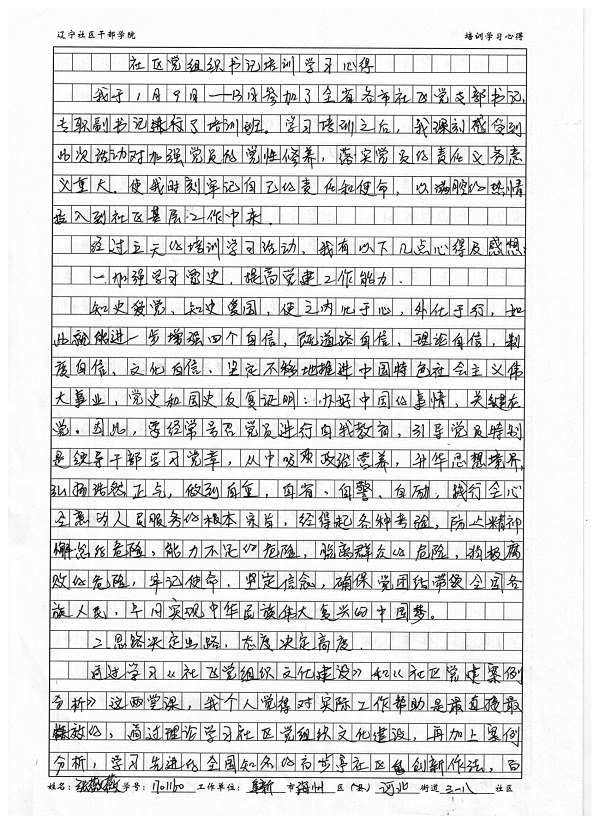 辽宁社区干部学院 培训学习心得
社区党组织书记培训学习心得
我于1月9日—13日参加了全省各市社区党支部书记、
专职副书记进行了培训班。学习培训之后，我深刻感受到
此次活动对加强党员的党性修养，落实党员的责任义务意
义重大。使我时刻牢记自己的责任和使命，以满腔的热情
投入到社区基层工作中来。
经过五天的培训学习活动，我有以下几点心得及感想：
一.加强学习党史，提高党建工作能力.
知史爱党、知史爱国，使之内化于心，外化于行，如
此就能进一步增强四个自信，既道路自信、理论自信、制
度自信、文化自信、坚定不移地推进中国特色社会主义伟
大事业，党史和国史反复证明：办好中国的事情，关键在
党。因此，要经常号召党员进行自我教育，引导党员特别
是领导干部学习党章，从中吸取政治营养，升华思想境界，
弘扬浩然正气，做到自重，自省、自警、自励，践行全心
全意为人民服务的根本宗旨，经得起各种考验，防止精神
懈怠的危险，能力不足的危险，脱离群众的危险，消极腐
败的危险，牢记使命，坚定信念，确保党团结带领全国各
族人民，早日实现中华民族伟大复兴的中国梦。
二.思路决定出路，态度决定高度.
通过学习《社区党组织文化建设》和《社区党建案例
分析》这两堂课，我个人觉得对实际工作帮助是最直接最
有效的，通过理论学习社区党组织文化建设，再加上案例
分析，学习先进的全国知名的百步亭社区的创新作法，百
姓名：张薇薇 学号：1701120 工作单位：阜新 市 海州 区（县） 河北 街道 三一八 社区